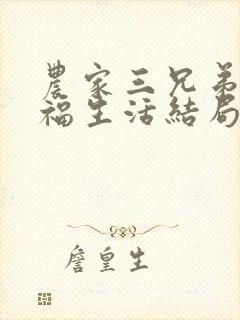 農家三兄弟
福生活結局
詹皇生